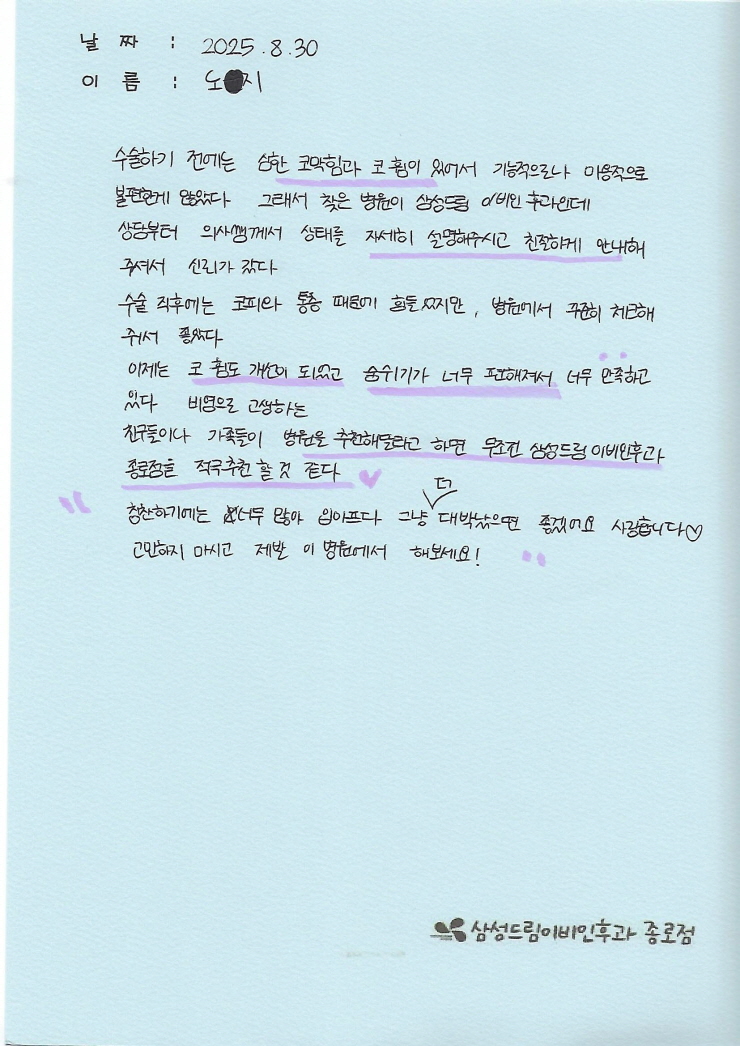 날 짜 : 2025.8.30
이 름 : 노 지
수술하기 전에는 심한 코막힘과 코 휨이 있어서 기능적으로나 미용적으로
불편한게 많았다 그래서 찾은 병원이 삼성드림 이비인후과인데
상담부터 의사쌤께서 상태를 자세히 설명해주시고 친절하게 안내해
주셔서 신뢰가 갔다
수술 직후에는 코피와 통증 때문에 힘들었지만, 병원에서 꾸준히 체크해
줘서 좋았다
이제는 코 휨도 개선이 되었고 숨쉬기가 너무 편해져서 너무 만족하고
있다 비염으로 고생하는
친구들이나 가족들이 병원을 추천해달라고 하면 무조건 삼성드림이비인후과
종로점을 적극추천 할 것 같다
더
칭찬하기에는 너무 많아 입아프다 그냥 대박났으면 좋겠어요 사랑합니다♡
고민하지 마시고 제발 이 병원에서 해보세요!
삼성드림이비인후과 종로점